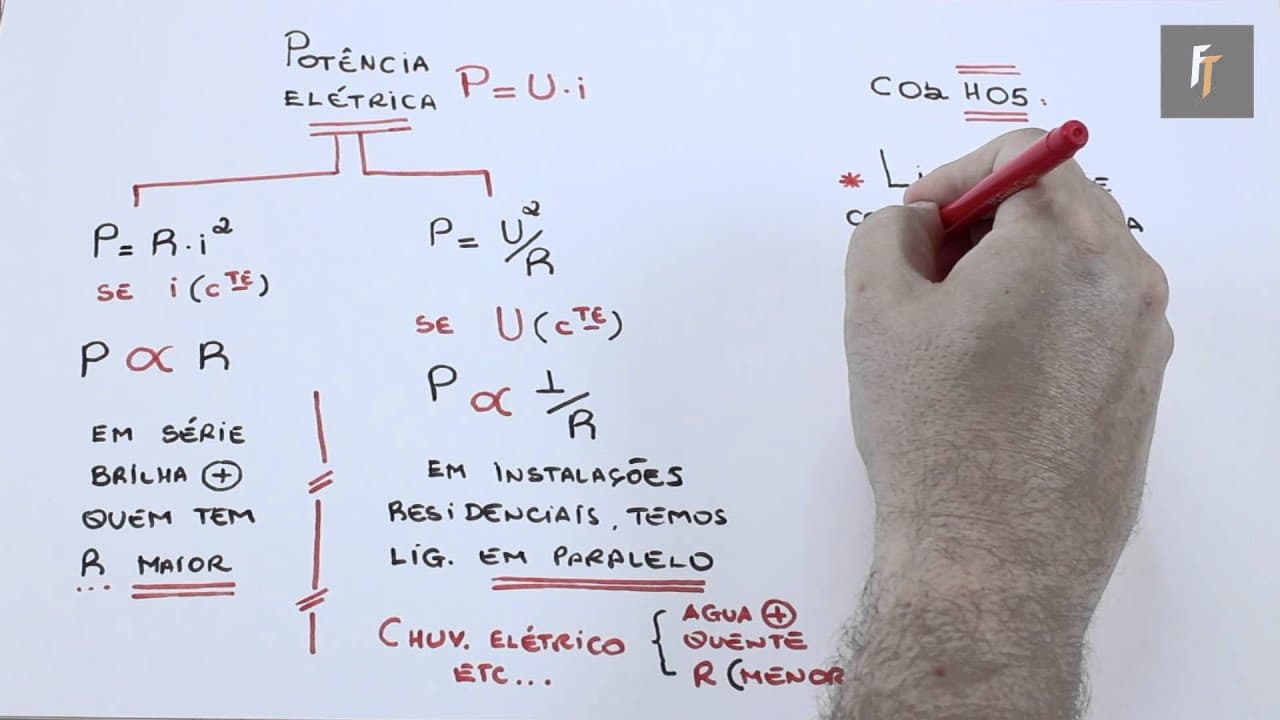 POTÊNCIA
ELÉTRICA P=U.i
P=R.i²
SE i(cTE)
P ∝ R
EM SÉRIE
BRILHA ⊕
QUEM TEM
R MAIOR
...
P=U²/R
SE U(cTE)
P ∝ 1/R
EM INSTALAÇÕES
RESIDENCIAIS, TEMOS
LIG. EM PARALELO
CHUV. ELÉTRICO
ETC...
AGUA ⊕
QUENTE
R (MENOR
CO2 HO5.
*
FT